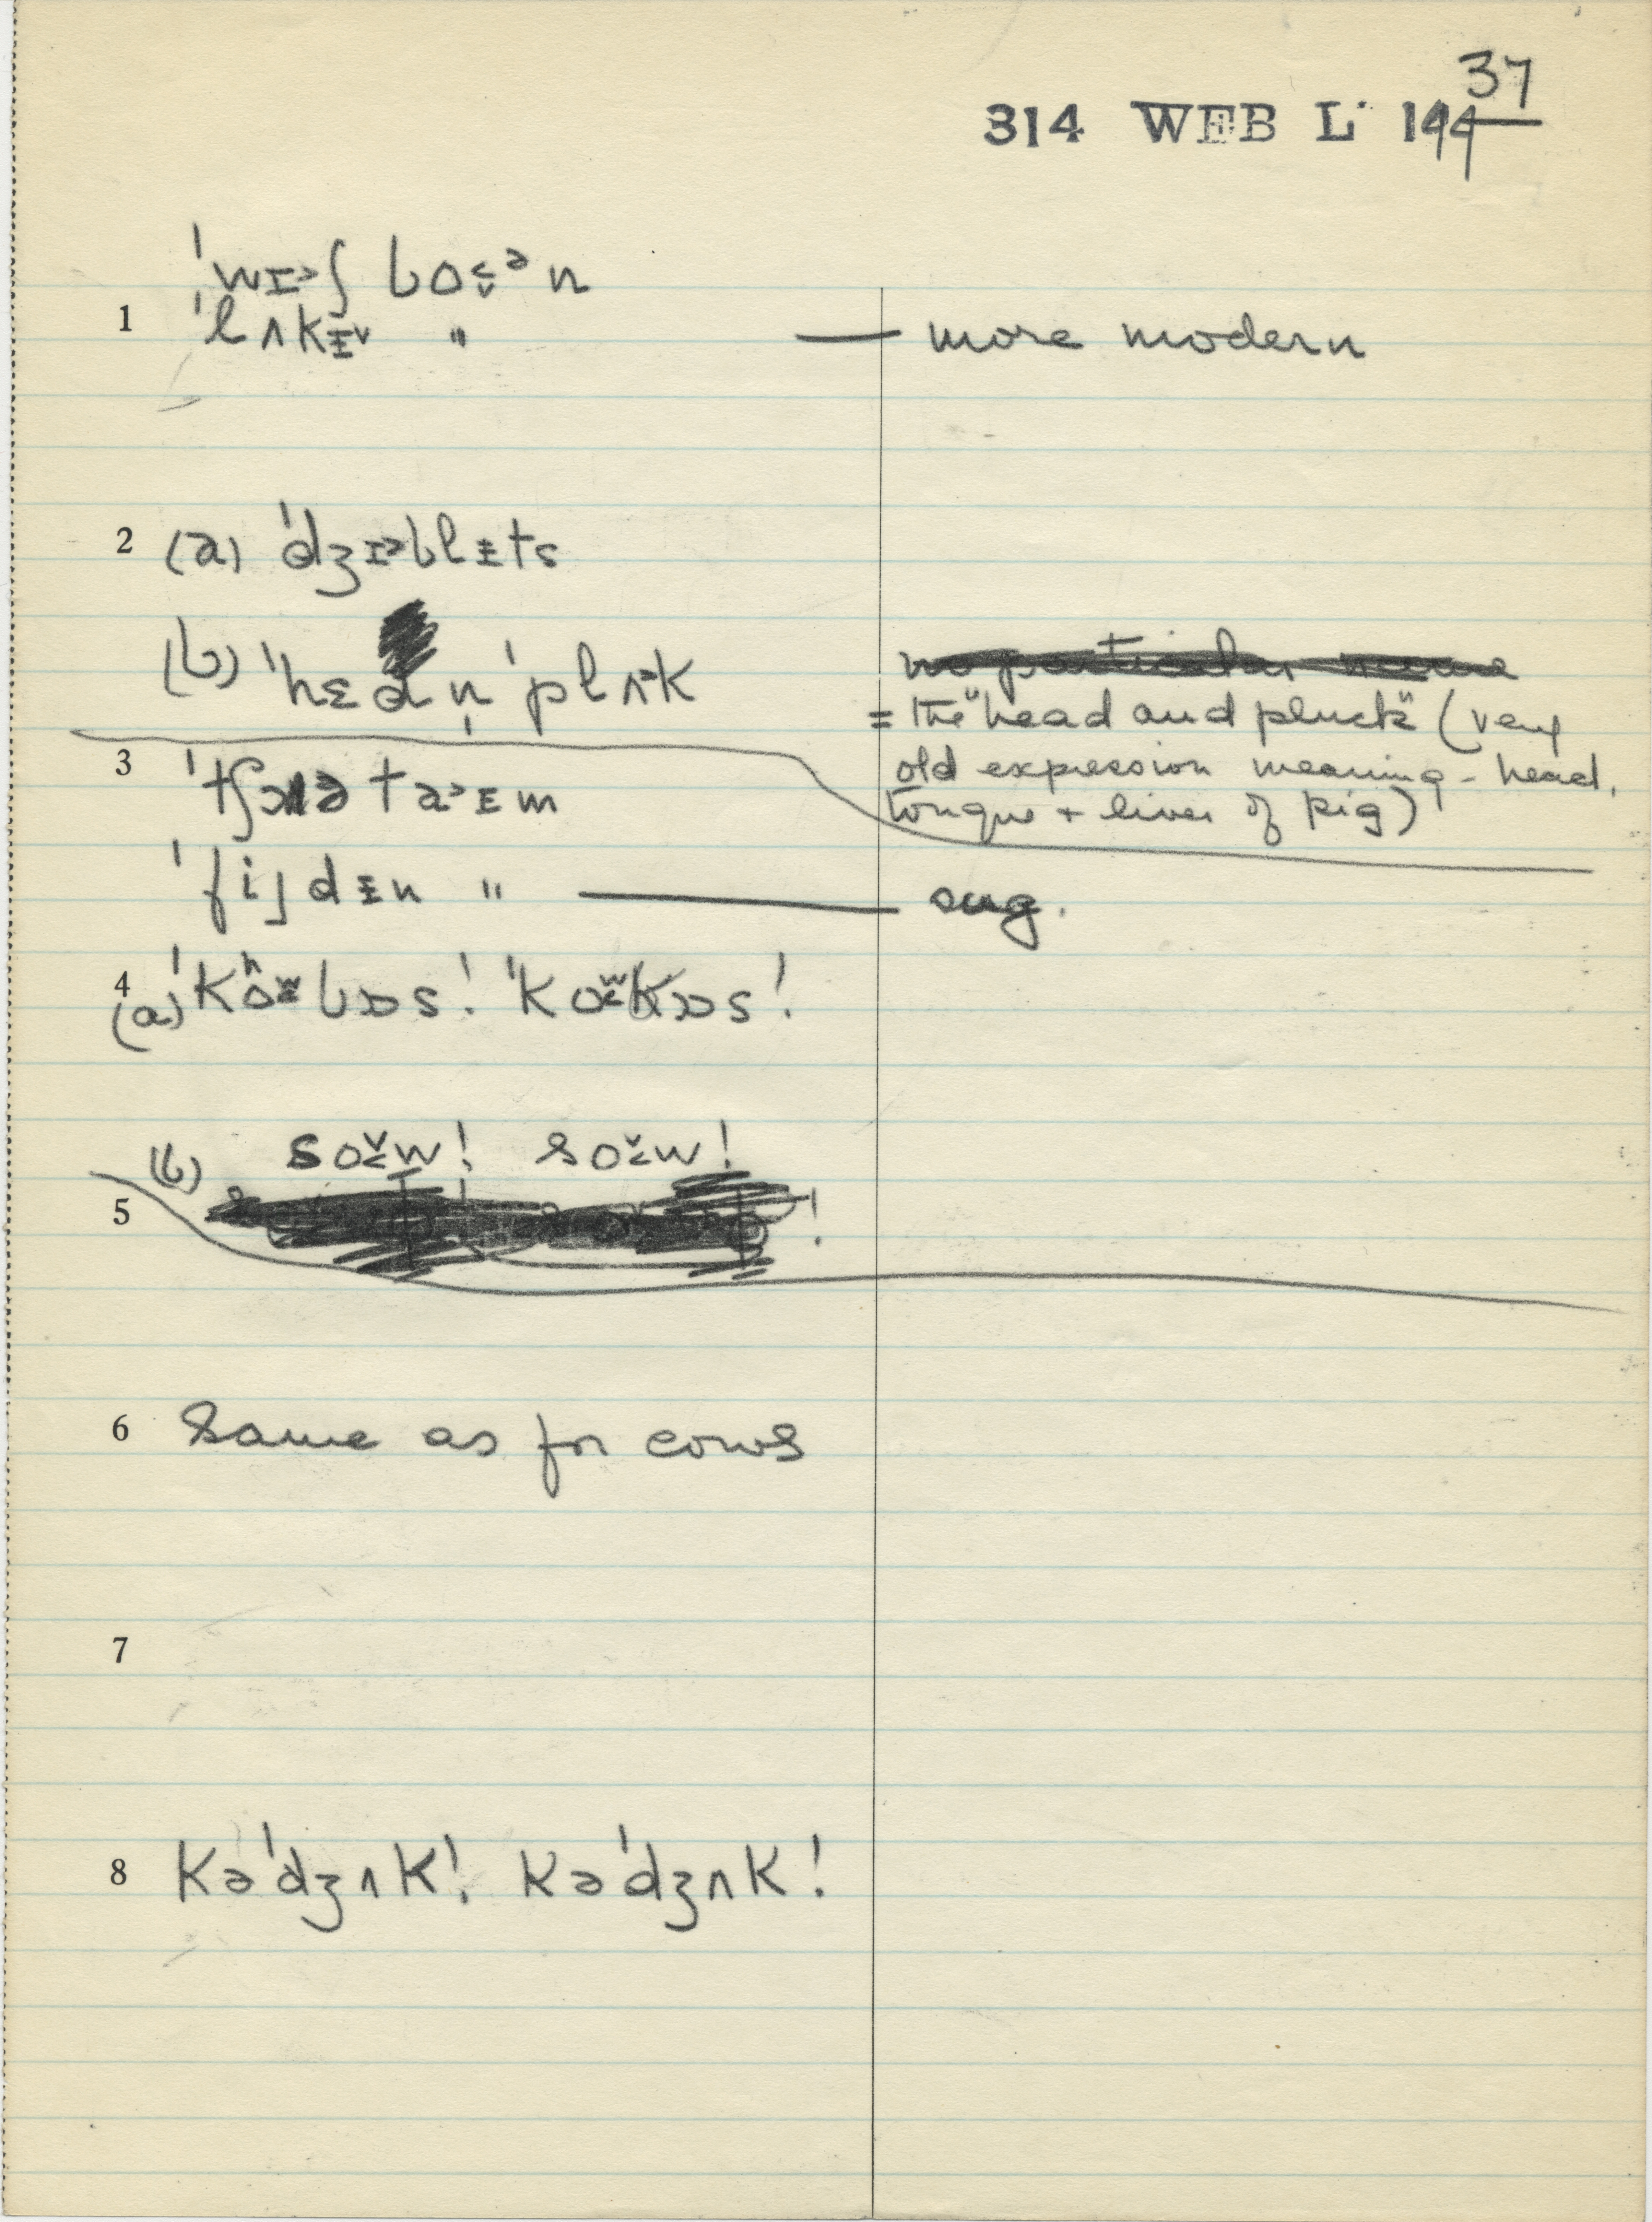 37
314 WEB L. 144
ˈwɪ˃ʃ boᵊn
1 ˈlʌkɪ˅ " — more modern
2 (a) ˈdʒɪ˃blɪts
(b) ˈhɛd n̩ ˈplʌ˃k
no particular name
= the "head and pluck" (very
old expression meaning - head,
tongue + liver of pig)
3 ˈtʃɔə ta˃ɪm
ˈfijdɪn " — sug.
4 (a) ˈkoʷbɒs! ˈkoʷkɒs!
(b) so˅w! so˅w!
5
6 Same as for cows
7
8 kəˈdʒʌk! kəˈdʒʌk!